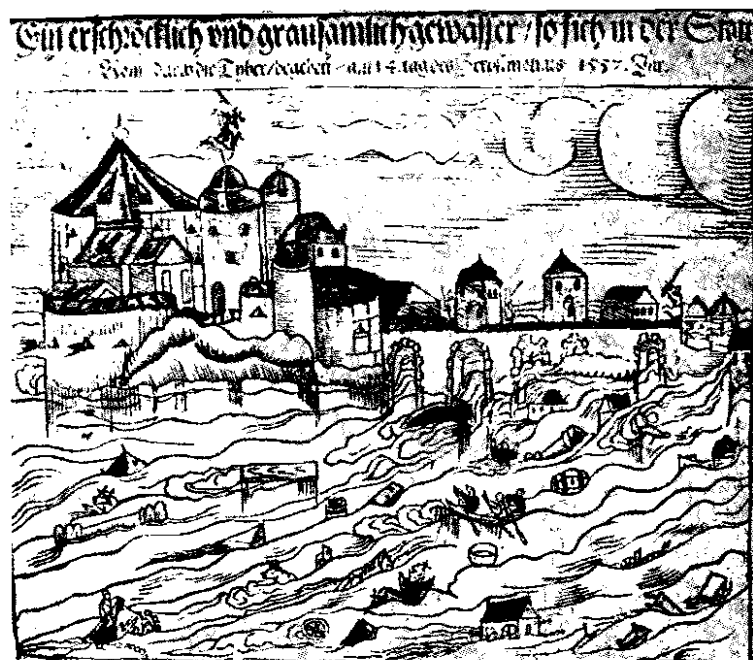 Ein erschröcklich vnd grausamlich gewässer / so sich in der Stat
Rom durch die Tyber / begeben / am 14 tag des Septembris 1557. Jar.